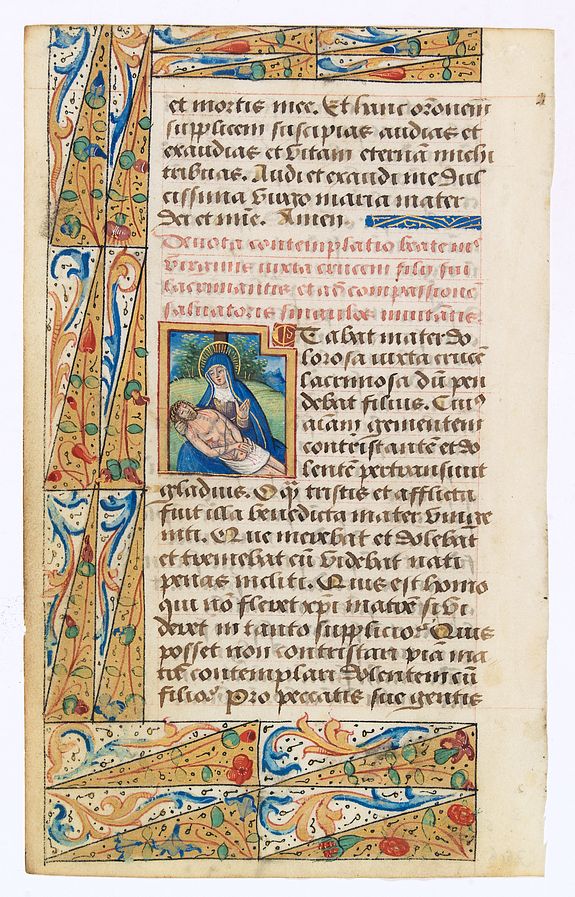 et mortis mee. Et hanc orõnem
supplicem suscipias audias et
exaudias et vitam eternã michi
tribuas. Audi et exaudi me dul
cissima virgo maria mater
dei et mīe. Amen.
Devota contemplatio beate mͥe
virginis iuxta crucem filij sui
lacrimantis et ad compassionẽ
salvatoris singulos invitãtis.
Stabat mater do
lorosa iuxta crucẽ
lacrimosa dũ pen
debat filius. Cuiꝰ
aĩam gementem
contristantẽ et do
lentẽ pertransivit
gladius. O q̃ tristis et afflicta
fuit illa benedicta mater unige
niti. Que merebat et dolebat
et tremebat cũ videbat nati
penas incliti. Quis est homo
qui nõ fleret xp̃i matrẽ si vi
deret in tanto supplicio? Quis
posset non contristari pia ma
trẽ contemplari dolentem cũ
filio? Pro peccatis sue gentis